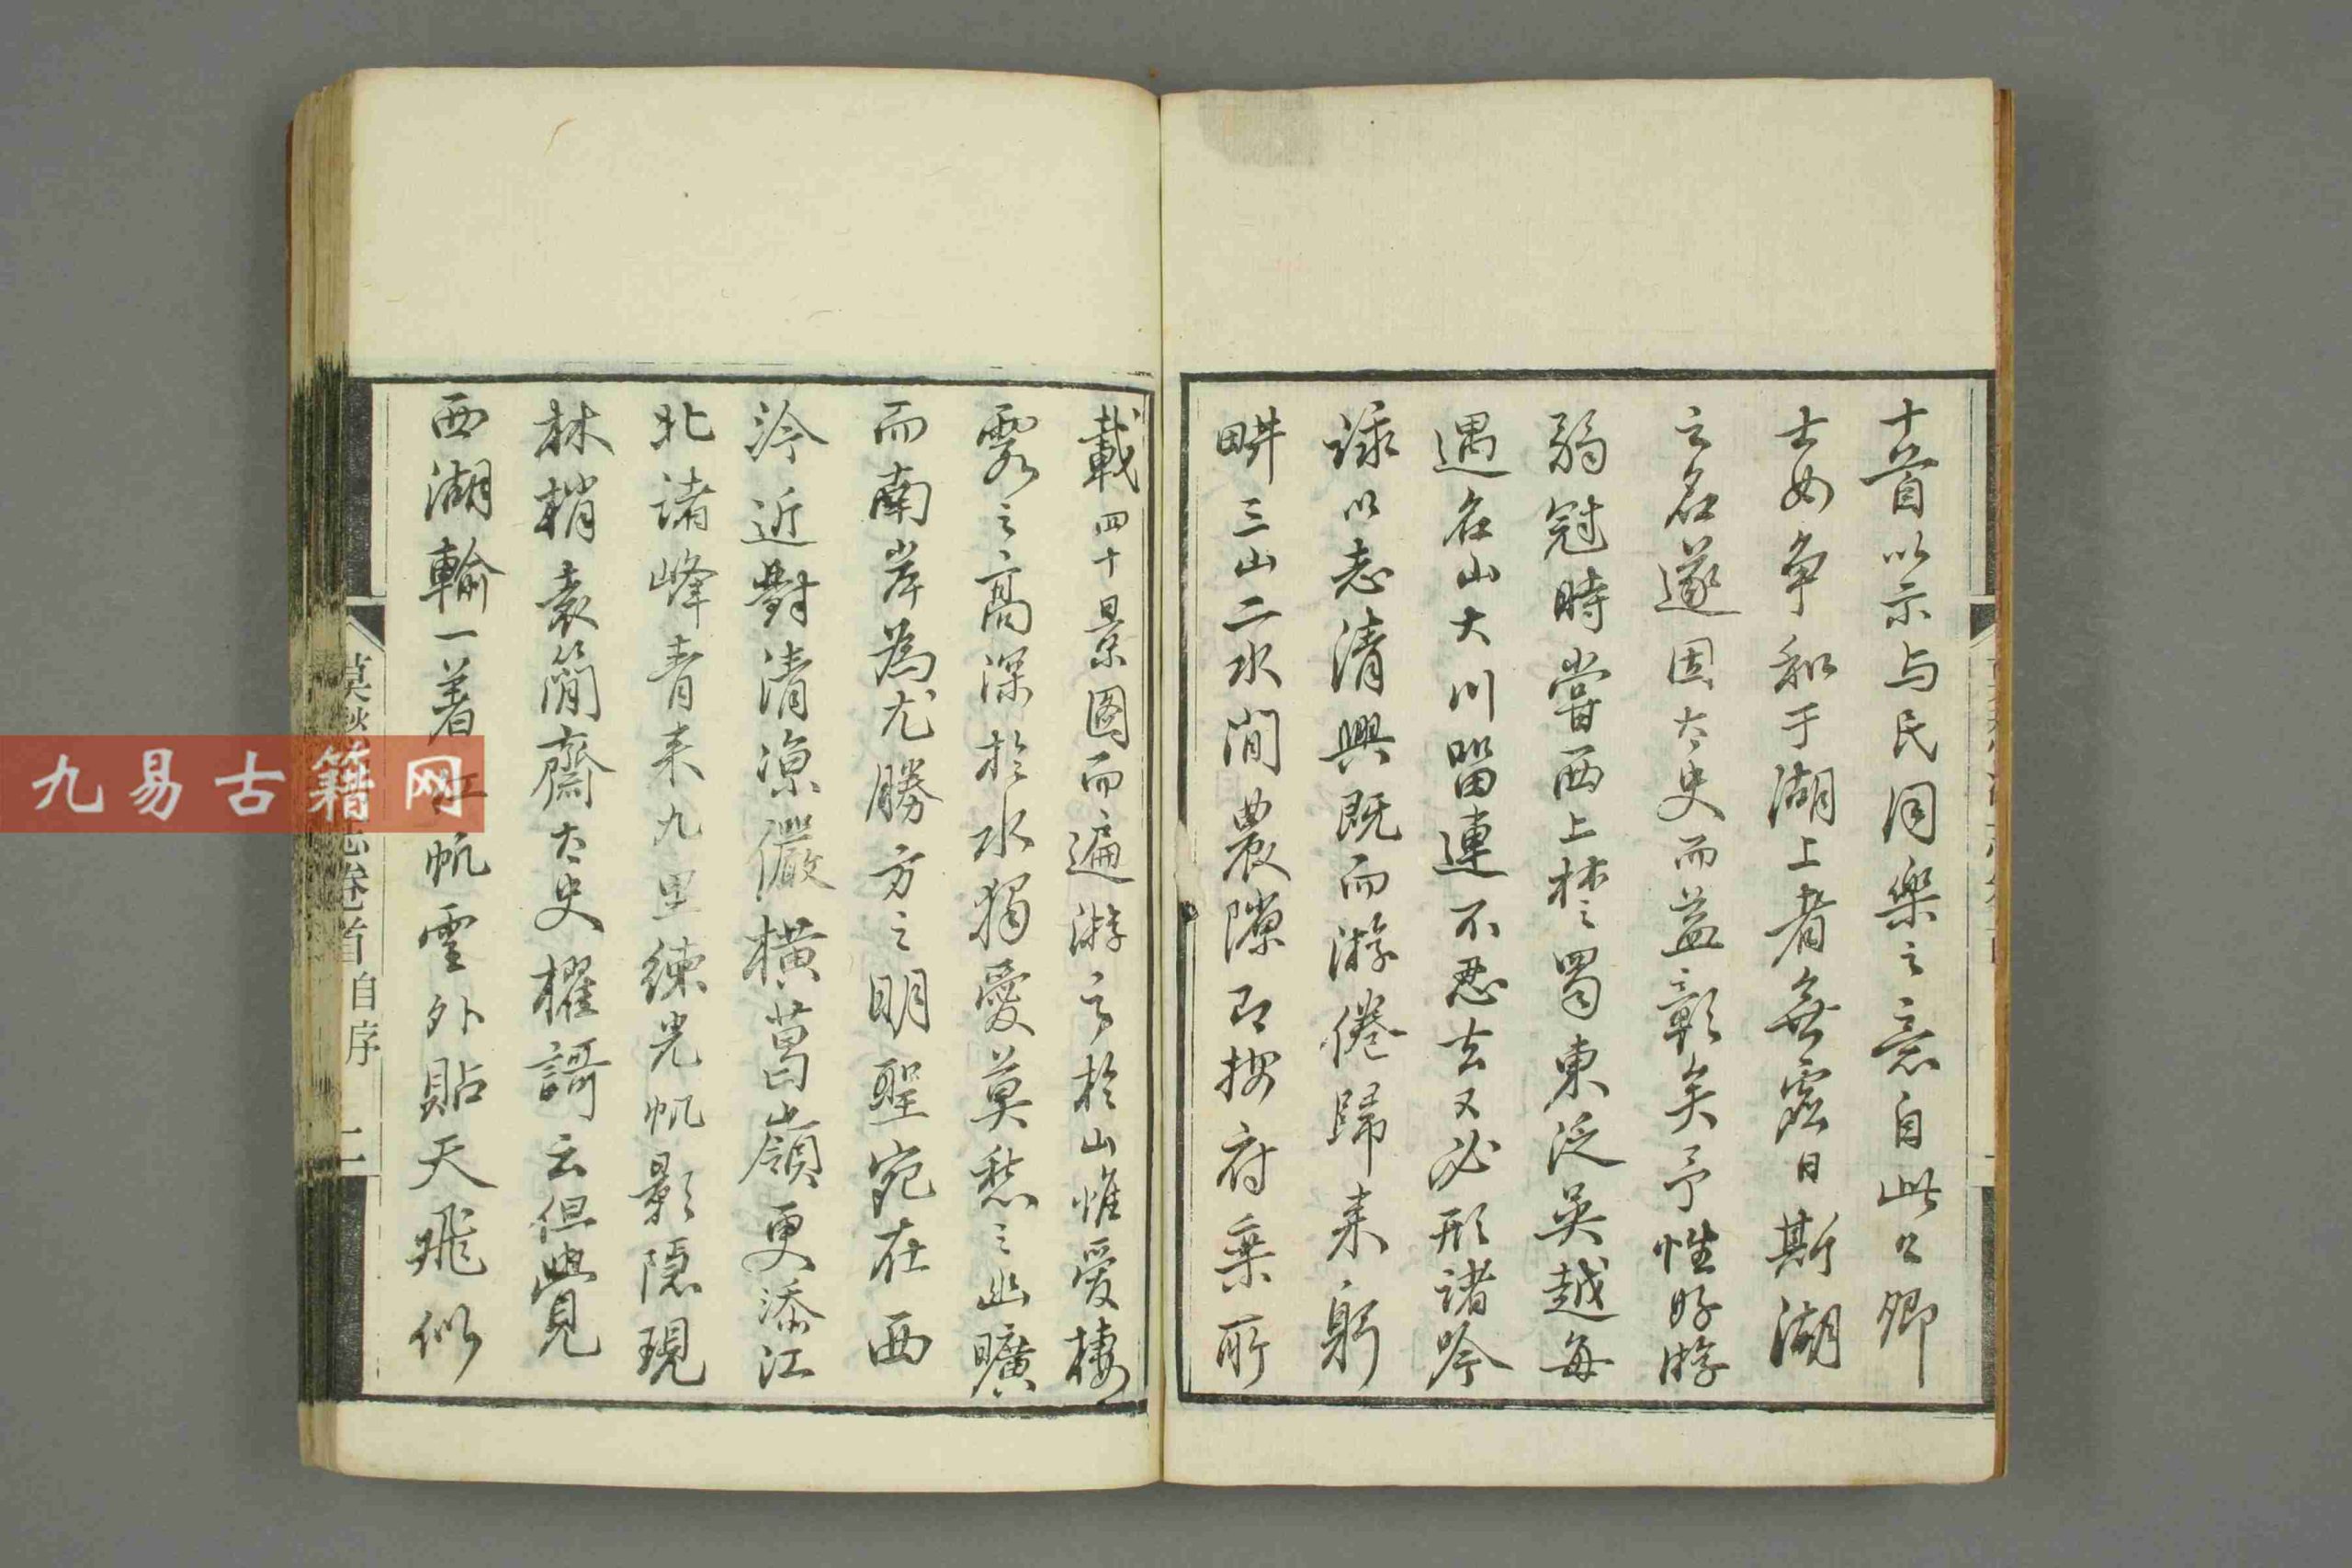 十首以示与民同樂之意自此公卿
士女争和于湖上者無虛日斯湖
之名遂因太史而益彰矣予性好游
弱冠時嘗西上楚蜀東泛吳越每
遇名山大川留連不忍去又必形諸吟
詠以志清興既而游倦歸来躬
畊三山二水間農隙即按府乗所
載四十景圖而遍游之於山惟爱棲
霞之高深於水獨愛莫愁之幽曠
而南岸為尤勝方之明聖宛在西
泠近對清涼儼橫葛嶺更添江
北諸峰青来九里練光帆影隱現
林梢袁簡齋太史櫂謌云但覺
西湖輸一著江帆雲外貼天飛似
莫愁湖志卷首 自序 二
九易古籍网